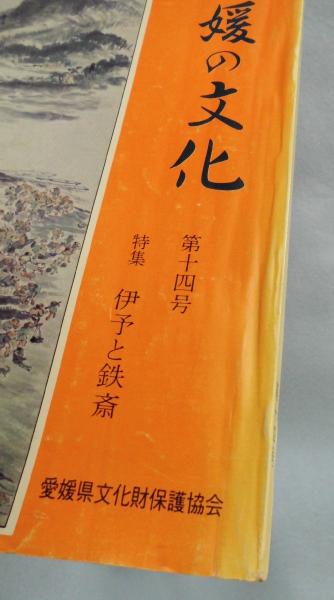 媛の文化
第十四号
特集 伊予と鉄斎
愛媛県文化財保護協会